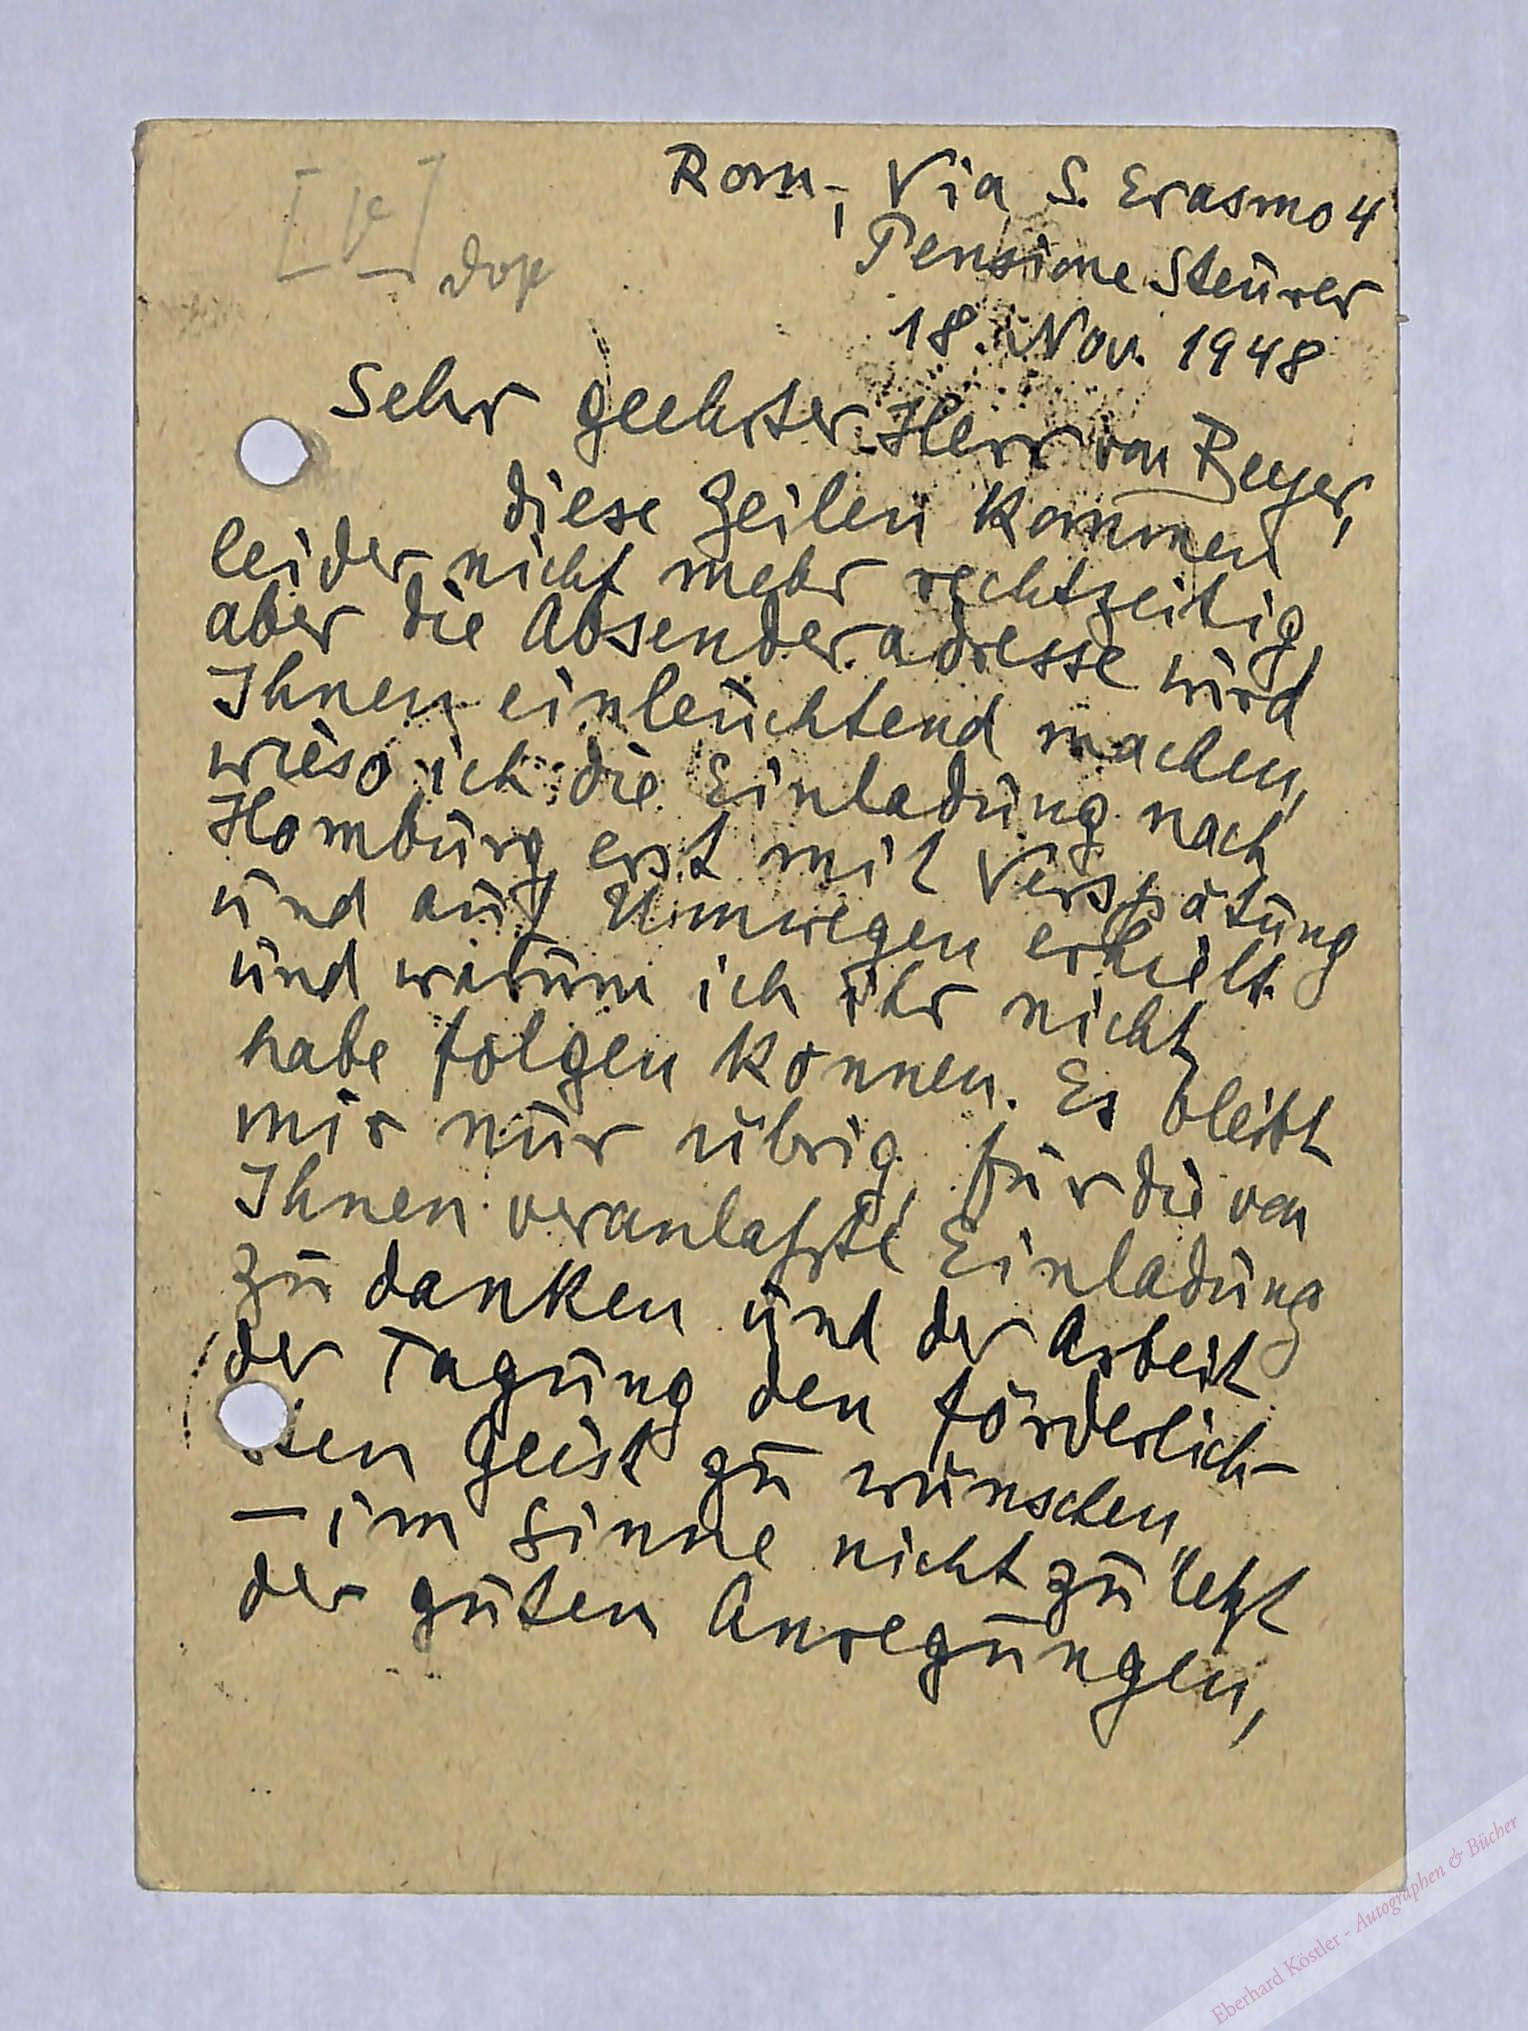 Rom, Via S. Erasmo 4
Pensione Steurer
18. Nov. 1948
Sehr geehrter Herr von Beyer,
diese Zeilen kommen
leider nicht mehr rechtzeitig,
aber die Absenderadresse wird
Ihnen einleuchtend machen,
wieso ich die Einladung nach
Homburg erst mit Verspätung
und auf Umwegen erhielt
und warum ich ihr nicht
habe folgen können. Es bleibt
mir nur übrig, für die von
Ihnen veranlaßte Einladung
zu danken und der Arbeit
der Tagung den förderlich-
sten Geist zu wünschen,
– im Sinne nicht zuletzt
der guten Anregungen,
Eberhard Köstler - Autographen & Bücher